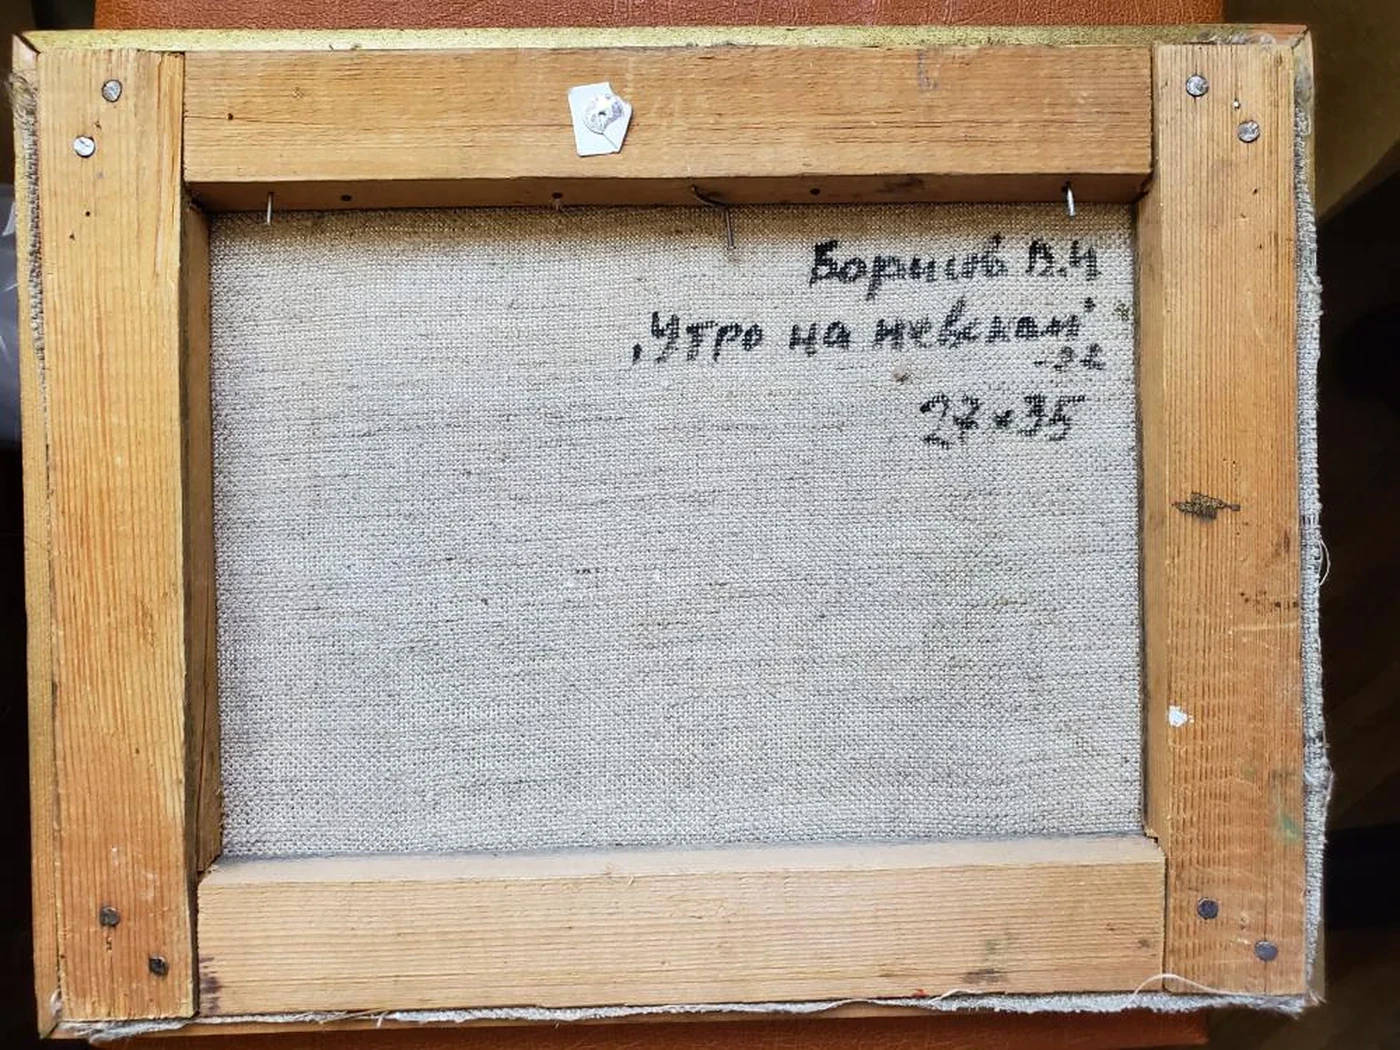 Борисов В.И
"Утро на невском"
-92
27×35